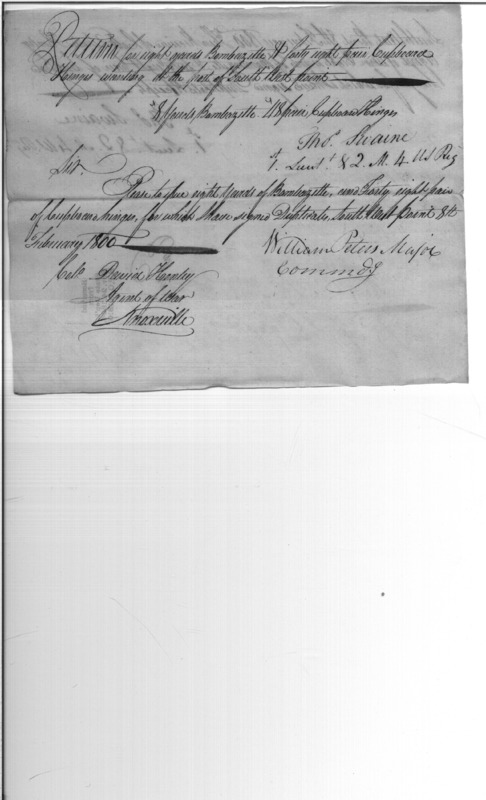 Return for eight yards Bombazette & forty eight pair Cupboard
Hinges wanting at the post of South West point
8 yards Bombazette 48 pair Cupboard Hinges
Thos. Swaine
Lieut. & Q. M. 4. US Reg
Sir.
Please to issue eight Yards of Bombazette, and Forty eight pair
of Cupboard hinges, for which I have signed Duplicate, South West Point 8th
February 1800
William Peters Major
Commdg
Colo David Henley
Agent of War
Knoxville